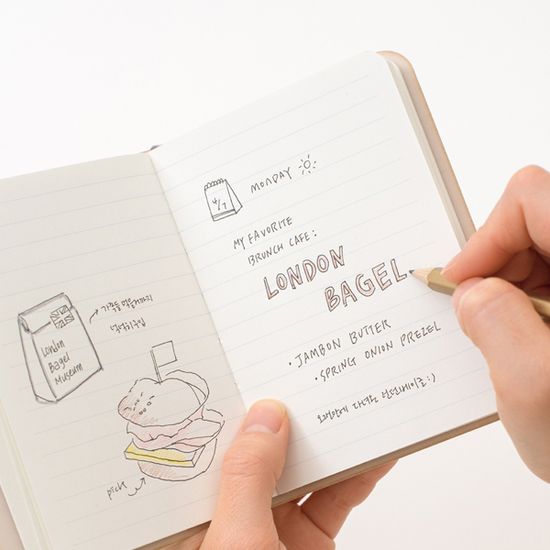 London
Bagel
Museum
pick
4/7
MONDAY
MY FAVORITE
BRUNCH CAFE:
LONDON
BAGEL
• JAMBON BUTTER
• SPRING ONION PREZEL